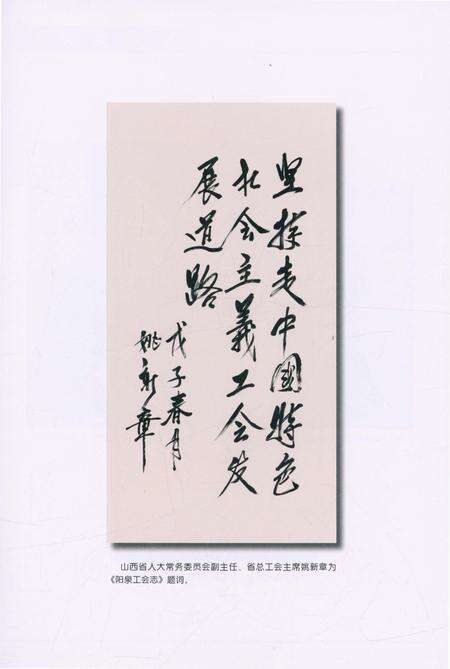 坚持走中国特色
社会主義工会发
展道路
戊子春月
姚新章
山西省人大常务委员会副主任、省总工会主席姚新章为
《阳泉工会志》题词。